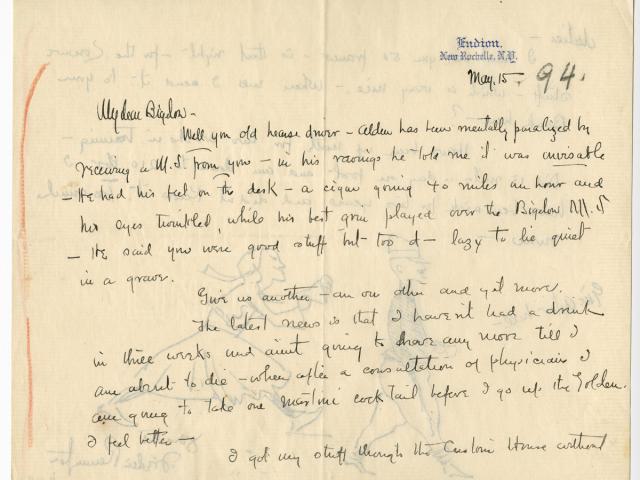 Endion,
New Rochelle, N.Y.
May. 15 - 94.
My dear Bigelow -
Well you old hearse driver - Alden has been mentally paralized by
receiving a M.S from you - in his ravings he told me it was
- He had his feet on the desk - a cigar going 40 miles an hour and
his eyes twinkled, while his best grin played over the Bigelow MS
- He said you were good stuff but too d - lazy to lie quiet
in a grave.
Give us another - an other and yet more.
The latest news is that I haven't had a drink
in three weeks and aint going to have any more till I
am about to die - when after a consultation of physicians I
am going to take one martini cock tail before I go up the Golden.
I feel better -
I got my stuff through the Custom House without